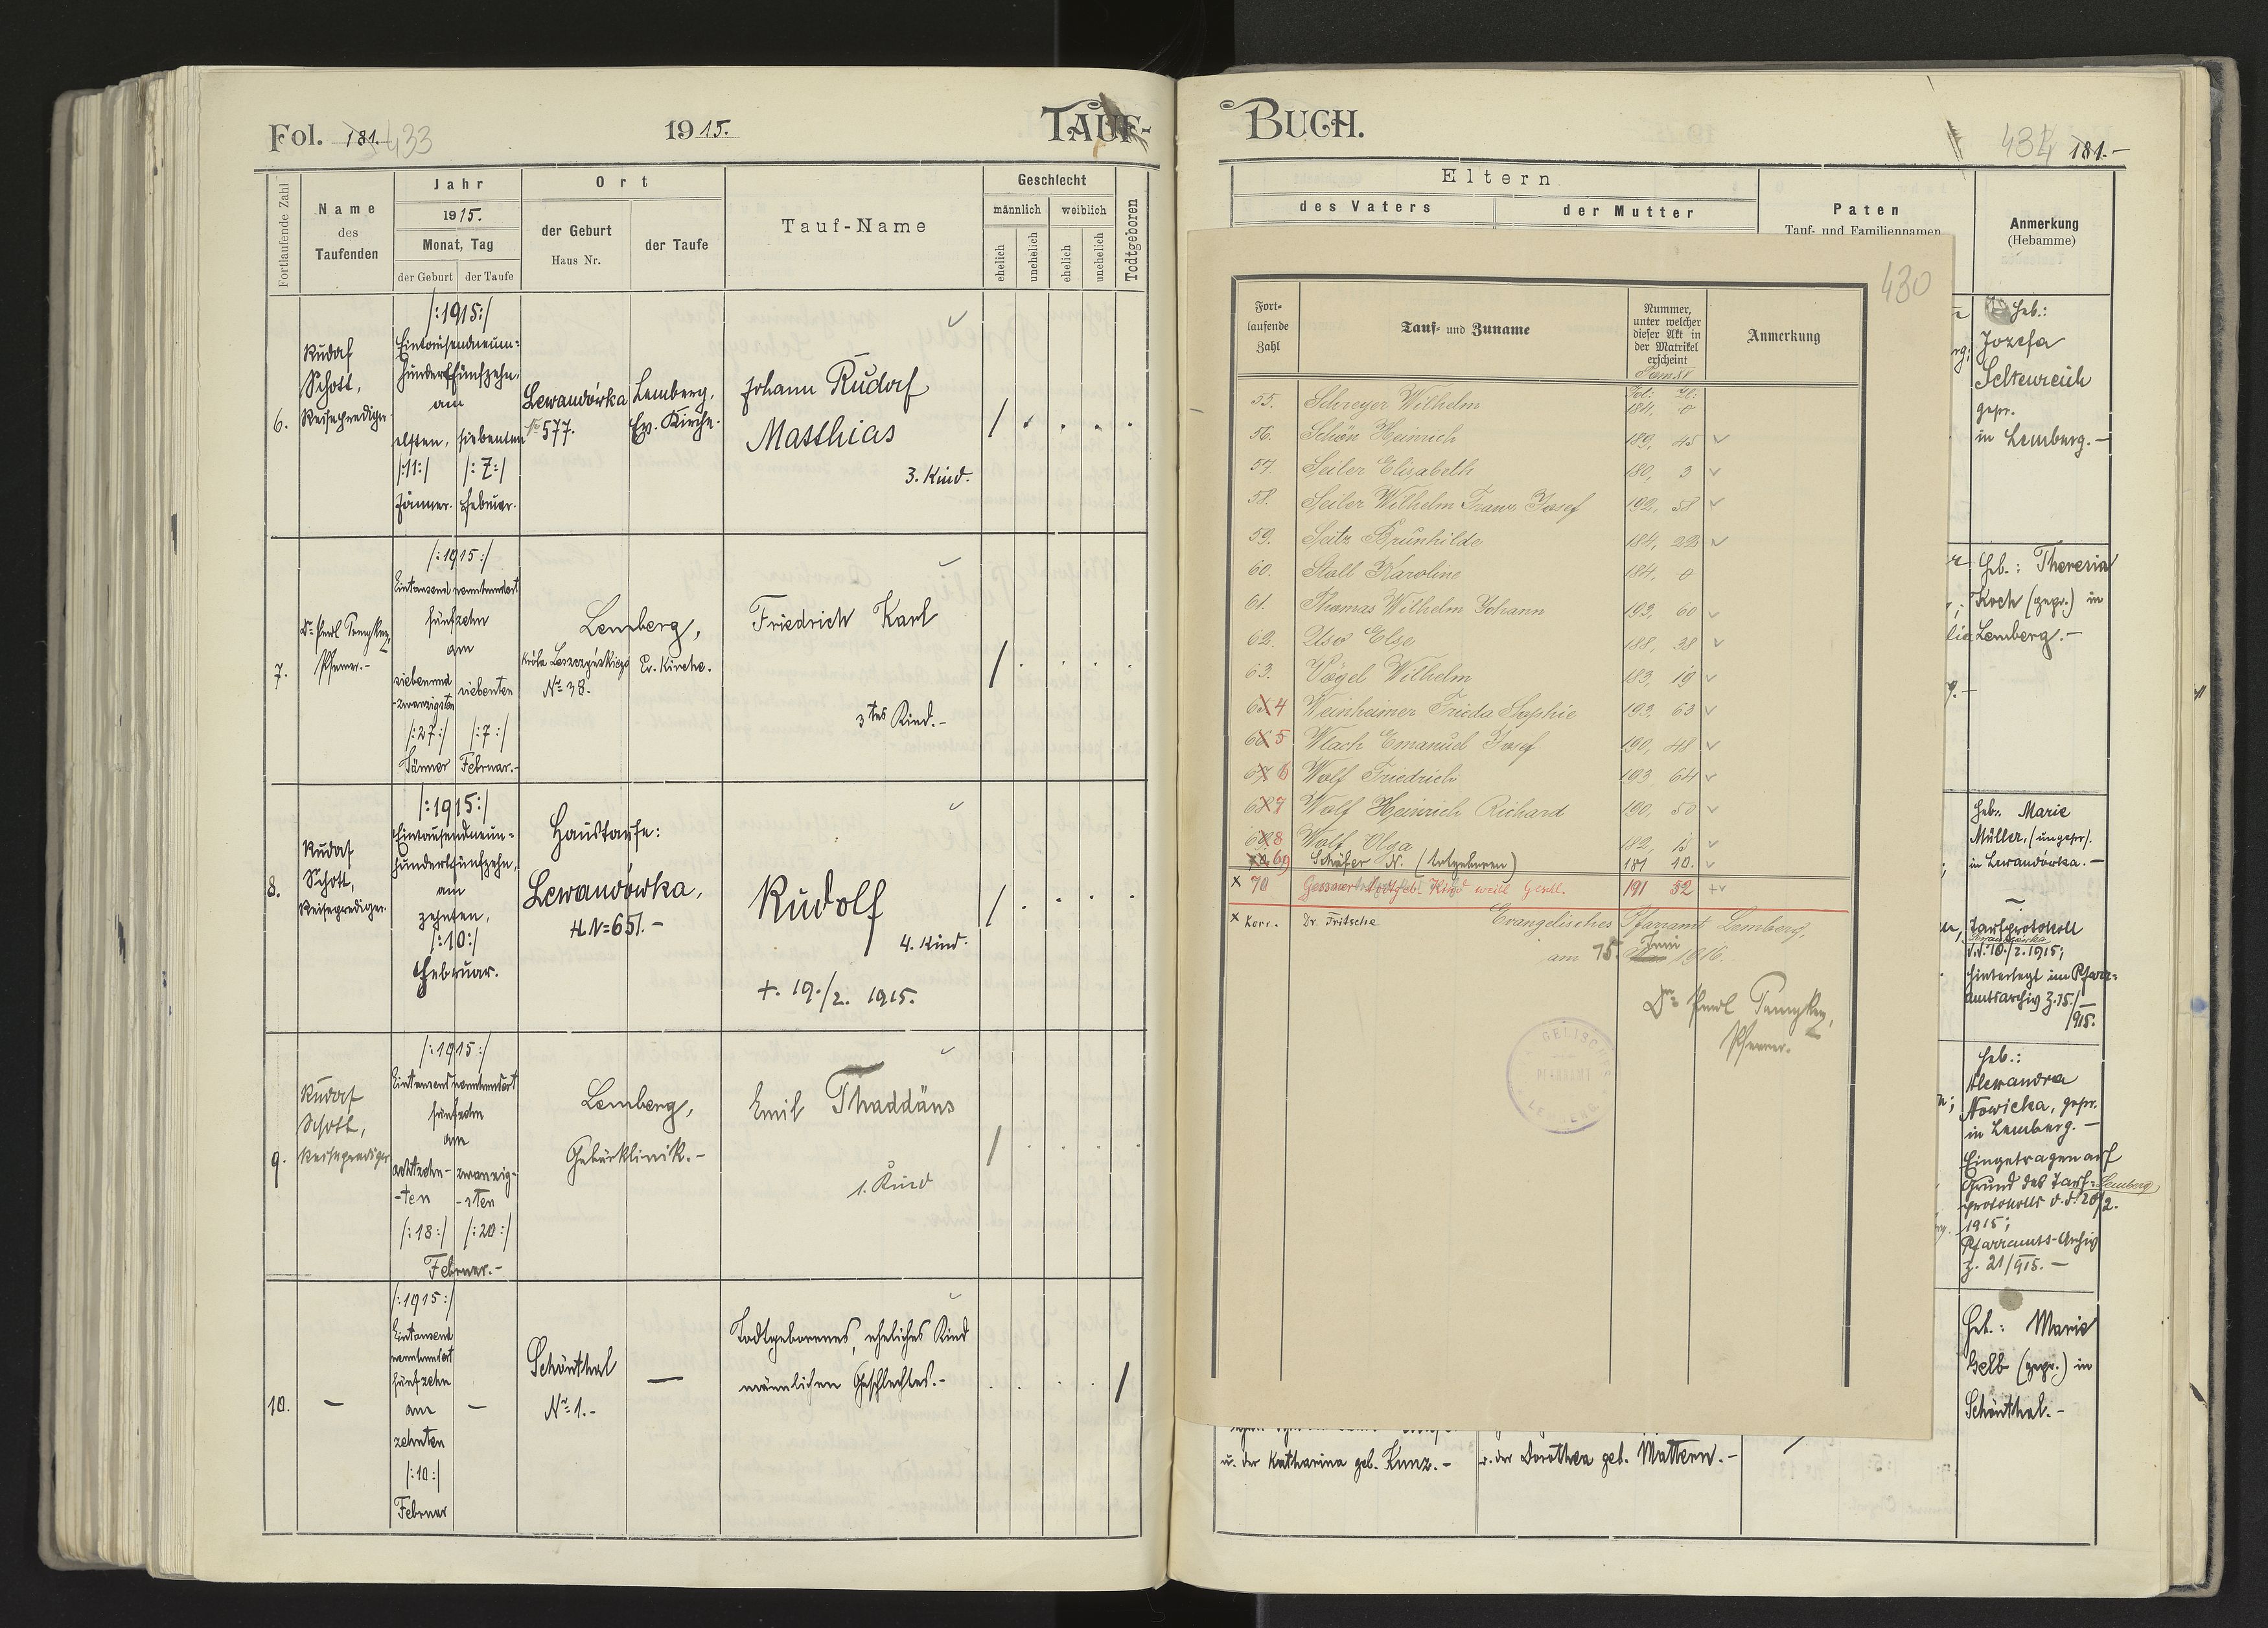 Fol. 181. 433
1915.
TAUF-
Fortlaufende Zahl
Name
des
Taufenden
Jahr
1915.
Monat, Tag
der Geburt
der Taufe
Ort
der Geburt
Haus Nr.
der Taufe
Tauf-Name
Geschlecht
männlich
weiblich
ehelich
unehelich
ehelich
unehelich
Todtgeboren
6.
Rudolf
Schott,
Reiseprediger
/:1915:/
Eintausendneun-
hundertfünfzehn,
am
elften,
/:11:/
Jänner.
siebenten
/:7:/
Februar.
Lewandówka
No 577.
Lemberg,
Ev. Kirche.
Johann Rudolf
Matthias
3. Kind.
7.
Dr. Paul
Pfarrer.-
/:1915:/
Eintausend neunhundert
fünfzehn
am
siebenund
-zwanzigsten
/:27:/
Jänner
siebenten
/:7:/
Februar.-
Lemberg,
Króla Leszczyńskiego
No 38.
Ev. Kirche.
Friedrich Karl
3tes Kind.-
8.
Rudolf
Schott,
Reiseprediger.
/:1915:/
Eintausendneun-
hundertfünfzehn,
am
zehnten,
/:10:/
Februar.
Haustaufe:
Lewandówka,
H.N=651.-
Rudolf
4. Kind.
+. 19./2. 1915.
9.
Rudolf
Schott,
Reiseprediger
/:1915:/
Eintausend neunhundert
fünfzehn
am
achtzehn-
-ten
/:18:/
zwanzig-
-sten
/:20:/
Februar.-
Lemberg,
Gebärklinik.-
Emil Thaddäus
1. Kind
10.
/:1915:/
Eintausend
neunhundert
fünfzehn
am
zehnten
/:10:/
Februar
Schönthal
No 1.-
Todtgeborenes, eheliches Kind
männlichen Geschlechtes.-
BUCH.
434 181.-
Eltern
des Vaters
der Mutter
Paten
Tauf- und Familiennamen
Anmerkung
(Hebamme)
430
Fort-
laufende
Zahl
Tauf- und Zuname
Nummer,
unter welcher
dieser Akt in
der Matrikel
erscheint
Anmerkung
Fol:
55. Schreyer Wilhelm 184, 0
56. Schön Heinrich 189, 45 v
57. Seiler Elisabeth 180, 3 v
58. Seiler Wilhelm Franz Josef 192, 58 v
59. Seitz Brunhilde 184, 22 v
60. Stall Karoline 184, 0
61. Thomas Wilhelm Johann 193, 60 v
62. Else 188, 38 v
63. Vögel Wilhelm 183, 19 v
64 Weinheimer Frieda Sophie 193, 63 v
65 Wlach Emanuel Josef 190, 48 v
66 Wolf Friedrich 193 64 v
67 Wolf Heinrich Richard 190, 50 v
68 Wolf Olga 182, 15 v
69 Schäfer N. (totgeboren) 181 10. v
x 70 Gessner totgeb. Kind weibl Geschl. 191 52 +v
x Korr. Dr. Fritsche
Evangelisches Pfarramt Lemberg,
am 15. Juni 1916.
Dr. Paul
Pfarrer.
EVANGELISCHES
PFARRAMT
LEMBERG
Heb.:
Jozefa
Seltenreich
gepr.
in Lemberg.-
Heb.: Theresia
Koch (gepr.) in
Lemberg.-
Heb.: Marie
Müller, (ungepr.)
in Lewandówka.-
Taufprotokoll
Lewandówka
d.d. 10./2. 1915;
hinterlegt im Pfarr-
amtsarchiv Z. 15./
1915.
Heb.:
Alexandra
Nowicka, gepr.
in Lemberg.-
Eingetragen auf
Grund des Tauf- Lemberg
protokolls d.d. 20/2.
1915;
Pfarramts-Archiv
Z. 21/915.-
Heb.: Marie
Gelb (gepr.) in
Schönthal.-
u. der Katharina geb. Kunz.-
u. der Dorothea geb. Mattern.-